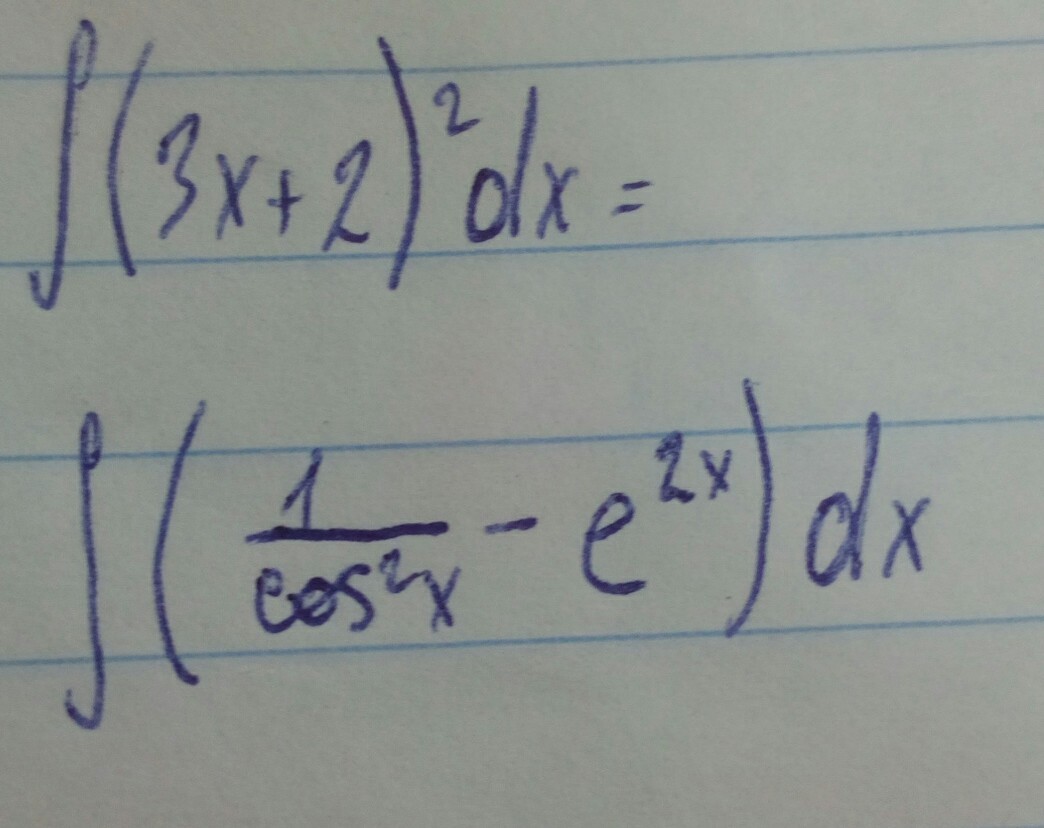 ∫(3x+2)²dx=
∫(1/cos²x - e^{2x})dx